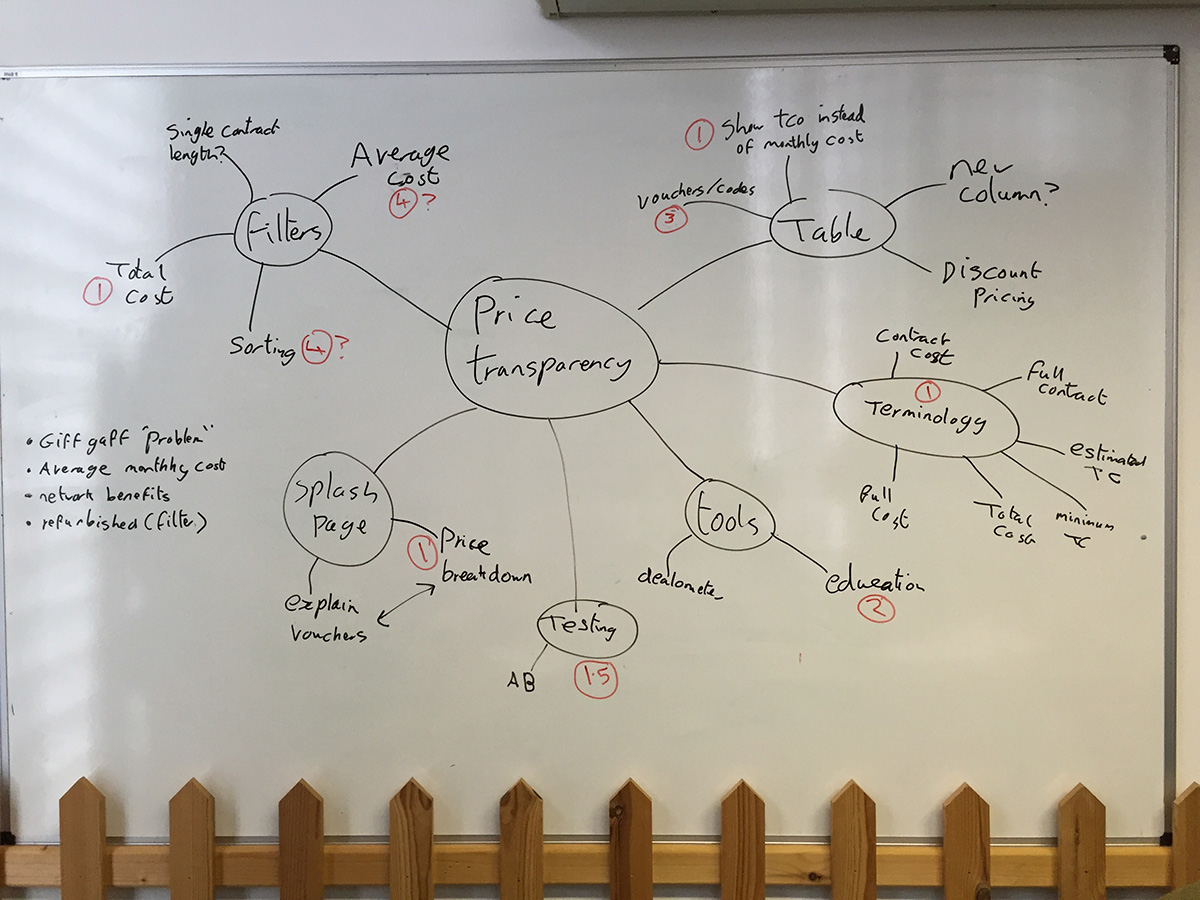 Single contract
length?
Average
cost
4 ?
filters
1 Total
cost
Sorting 4 ?
1 Show tco instead
of monthly cost
vouchers/codes
3
new
column?
Table
Discount
Pricing
Price
transparency
Contract
cost
full
contact
1
Terminology
estimated
TC
minimum
TC
Total
Cost
full
cost
• Giff gaff "problem"
• Average monthly cost
- network benefits
• refurbished (filter)
Splash
page
1 Price
breakdown
explain
vouchers
tools
dealometer
education
2
Testing
AB
1.5